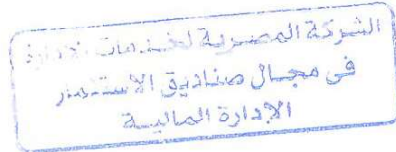 الشركة المصرية لخدمات الادارة
فى مجال صناديق الاستثمار
الإدارة المالية